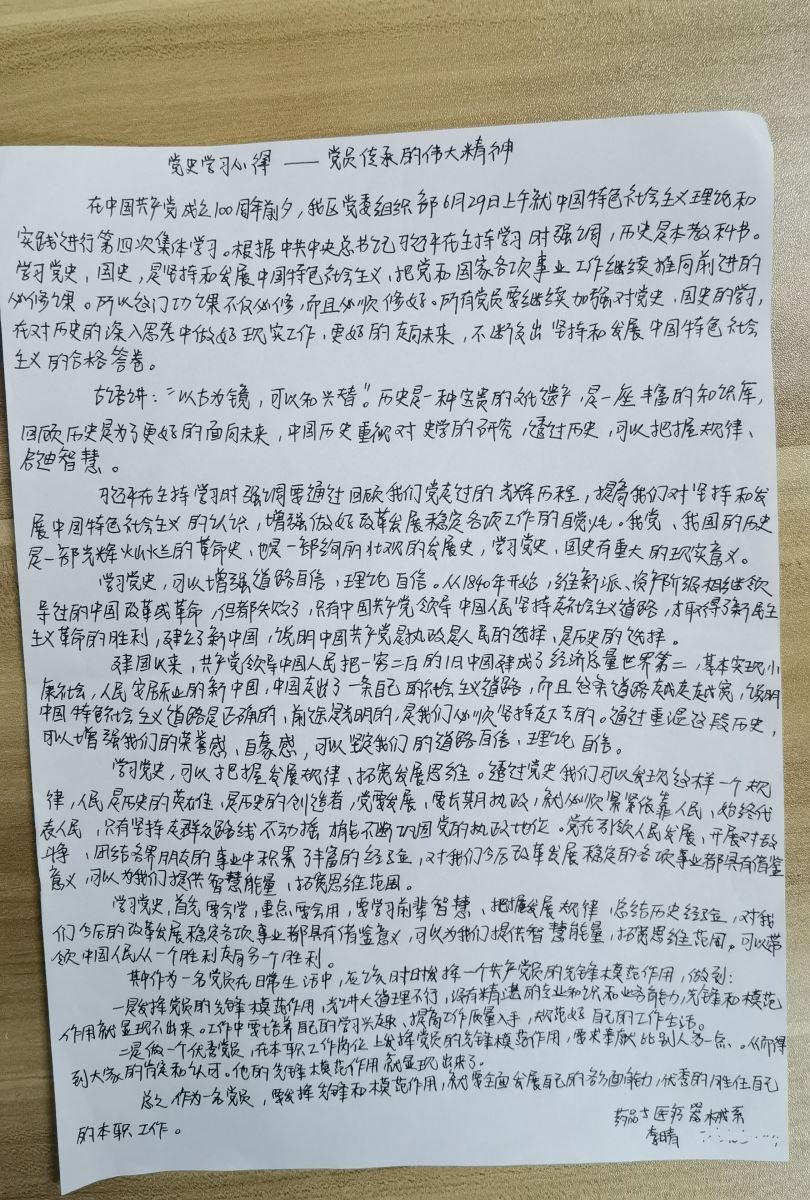 党史学习心得 —— 党员传承的伟大精神
在中国共产党成立100周年前夕，我区党委组织部6月29日上午就中国特色社会主义理论和
实践进行第四次集体学习。根据中共中央总书记习近平在主持学习时强调，历史是本教科书。
学习党史、国史，是坚持和发展中国特色社会主义、把党和国家各项事业工作继续推向前进的
必修课。所以这门功课不仅必修，而且必须修好。所有党员要继续加强对党史、国史的学习，
在对历史的深入思考中做好现实工作、更好的走向未来，不断交出坚持和发展中国特色社会
主义的合格答卷。
古语讲：“以古为镜，可以知兴替”。历史是一种宝贵的文化遗产，是一座丰富的知识库，
回顾历史是为了更好的面向未来，中国历史重视对史学的研究，透过历史，可以把握规律、
启迪智慧。
习近平在主持学习时强调要通过回顾我们党走过的光辉历程，提高我们对坚持和发
展中国特色社会主义的认识，增强做好改革发展稳定各项工作的自觉性。我党、我国的历史
是一部光辉灿烂的革命史、也是一部绚丽壮观的发展史，学习党史、国史有重大的现实意义。
学习党史，可以增强道路自信、理论自信。从1840年开始，维新派、资产阶级相继领
导过的中国改革或革命，但都失败了，只有中国共产党领导中国人民坚持走社会主义道路，才取得了新民主
主义革命的胜利，建立了新中国，说明中国共产党是执政是人民的选择、是历史的选择。
建国以来，共产党领导中国人民把一穷二白的旧中国建成了经济总量世界第二，基本实现小
康社会，人民安居乐业的新中国，中国走好了一条自己的社会主义道路，而且这条道路越走越宽，说明
中国特色社会主义道路是正确的、前途是光明的，是我们必须坚持走下去的。通过重温这段历史，
可以增强我们的荣誉感、自豪感，可以坚定我们的道路自信、理论自信。
学习党史，可以把握发展规律、拓宽发展思维。透过党史我们可以发现这样一个规
律，人民是历史的英雄、是历史的创造者，党要发展、要长期执政，就必须紧紧依靠人民、始终代
表人民，只有坚持走群众路线不动摇，才能不断巩固党的执政地位。党在引领人民发展、开展对敌
斗争、团结各界朋友的事业中积累了丰富的经验，对我们今后改革发展稳定的各项事业都具有借鉴
意义，可以为我们提供智慧能量、拓宽思维范围。
学习党史，首先要会学，重点要会用，要学习前辈智慧、把握发展规律、总结历史经验，对我
们今后的改革发展稳定各项事业都具有借鉴意义，可以为我们提供智慧能量，拓宽思维范围。可以带
领中国人民从一个胜利走向另一个胜利。
其中作为一名党员在日常生活中，应该时时发挥一个共产党员的先锋模范作用，做到：
一是发挥党员的先锋模范作用，光讲大道理不行，没有精湛的专业知识和业务能力，先锋和模范
作用就显现不出来。工作中要培养自己的学习兴趣、提高工作质量入手，规范好自己的工作生活。
二是做一个优秀党员，在本职工作岗位上发挥党员的先锋模范作用，要求奉献比别人多一点、。从而得
到大家的肯定和认可。他的先锋模范作用就显现出来了。
总之作为一名党员，要发挥先锋和模范作用，就要全面发展自己的各方面能力，优秀的胜任自己
的本职工作。
药品与医疗器械系
李晴